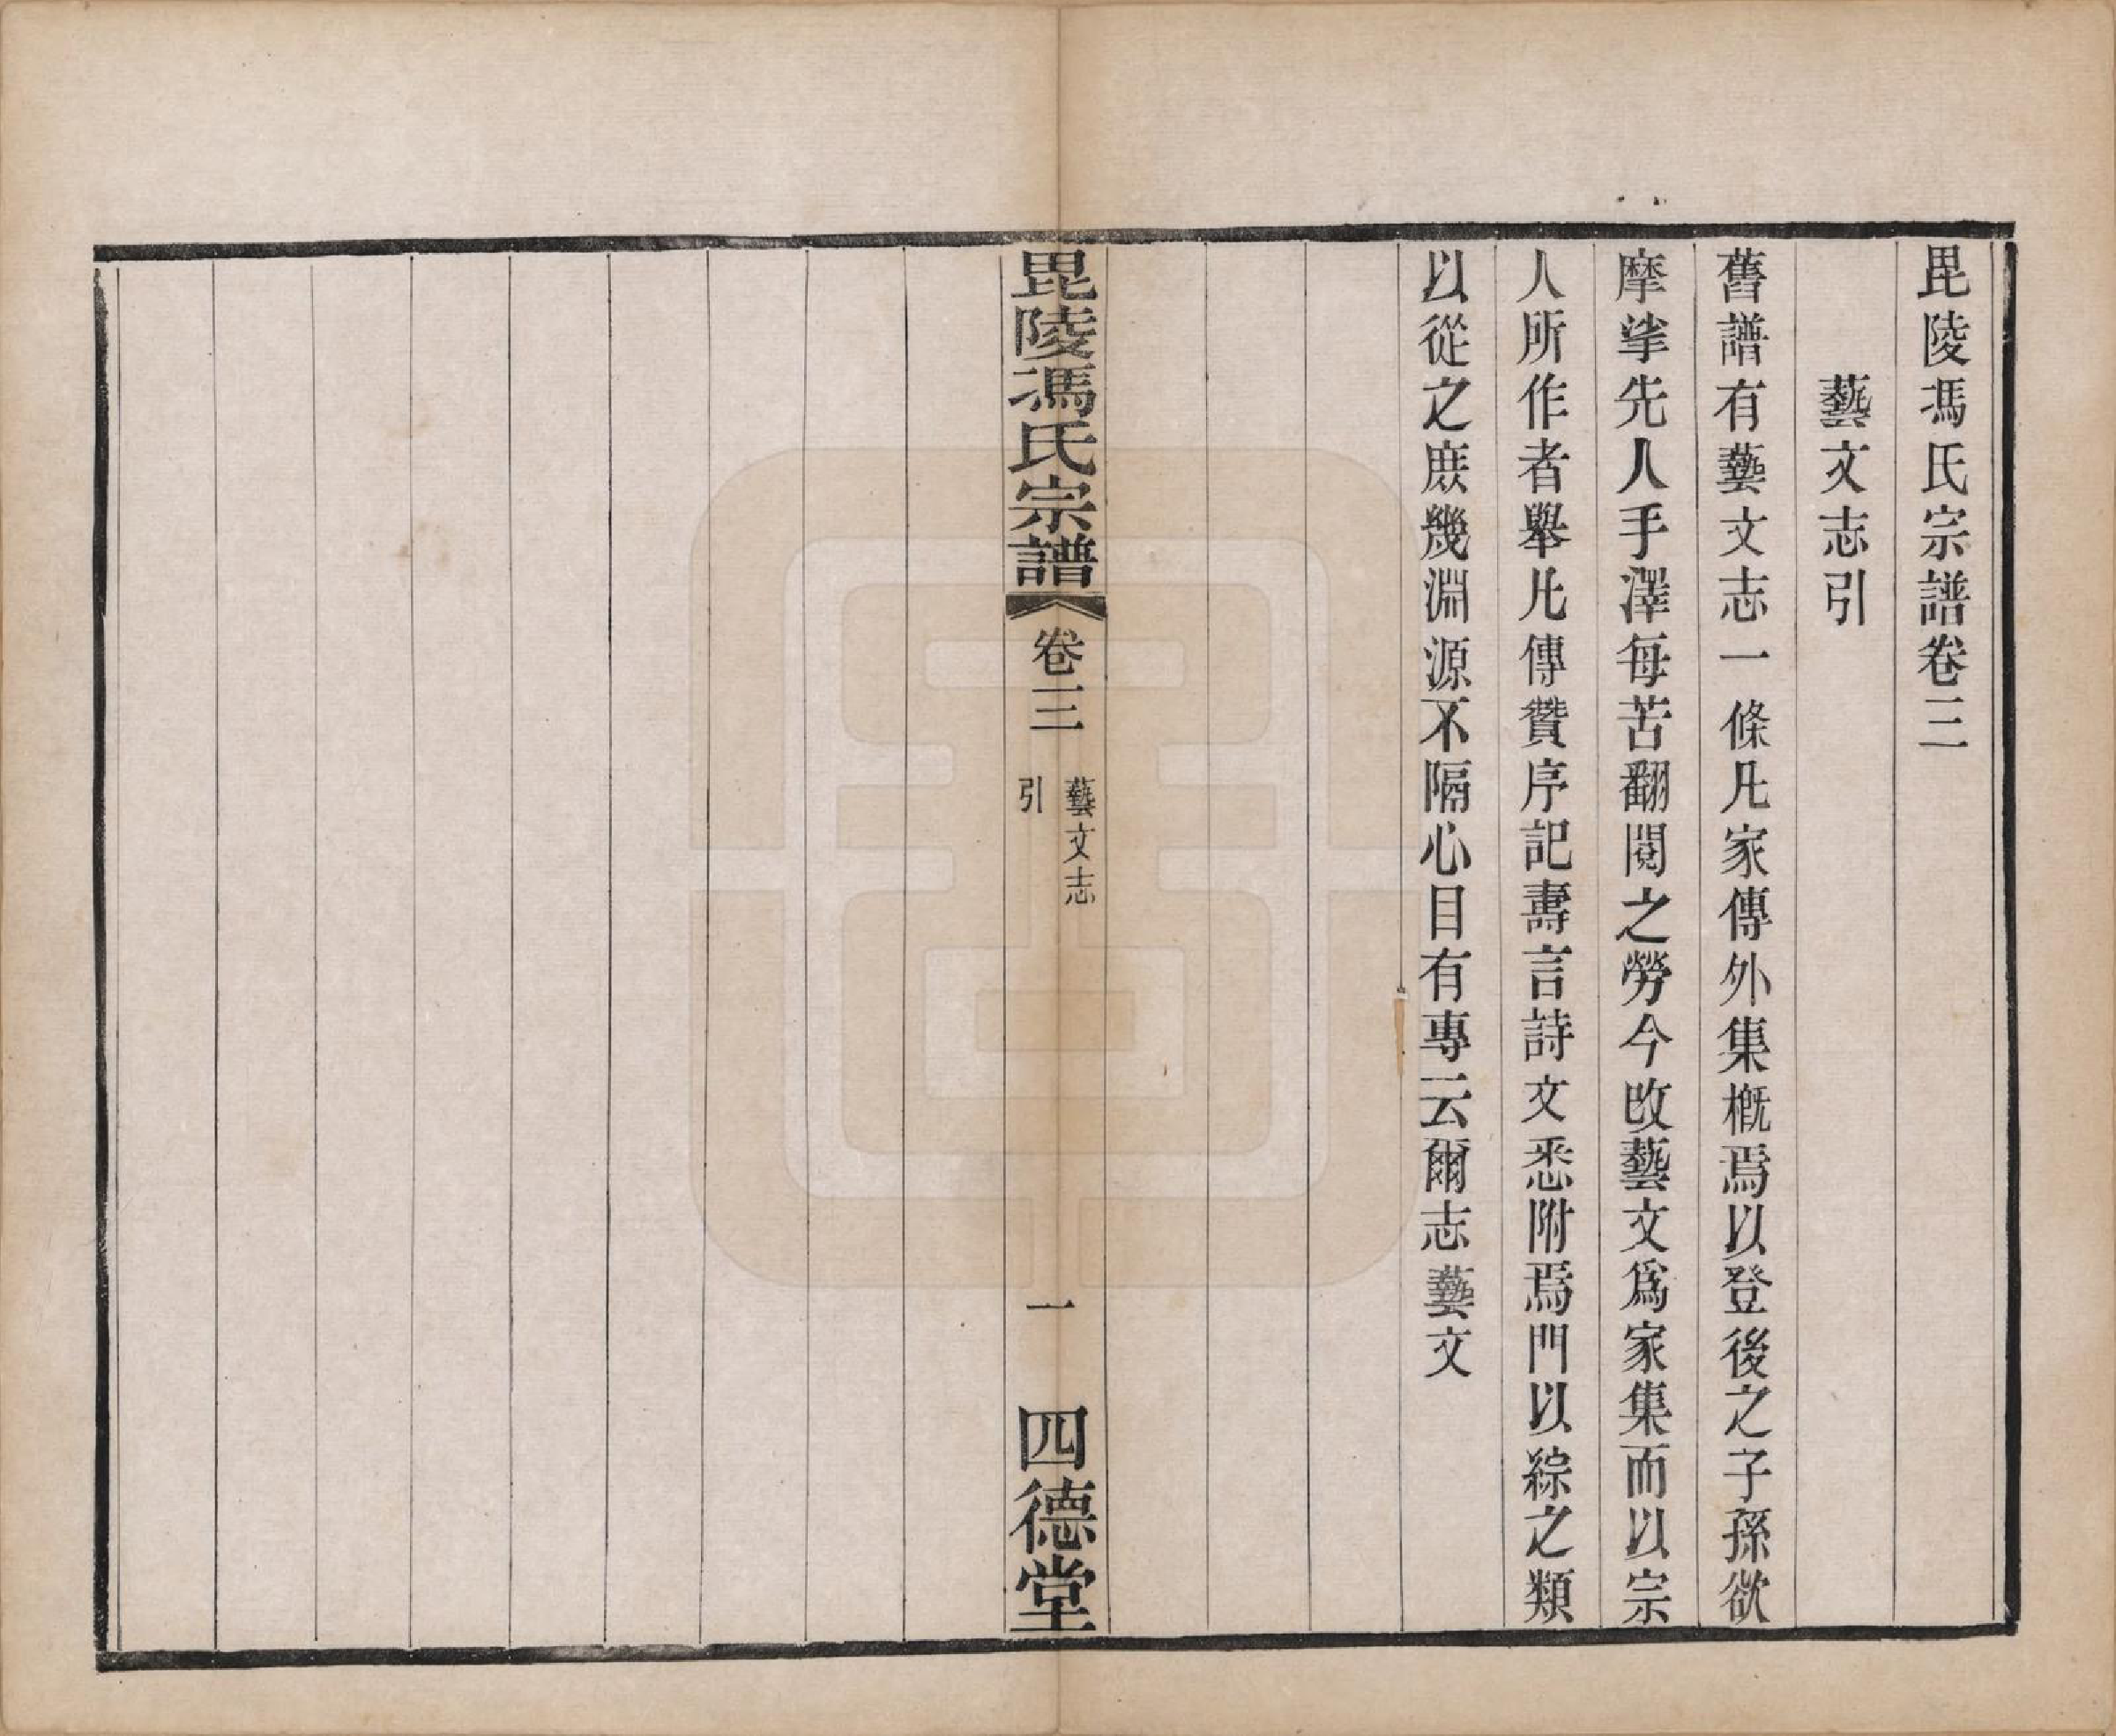 毘陵馮氏宗譜卷三
藝文志引
舊譜有藝文志一條凡家傳外集槪焉以登後之子孫欲
摩挲先人手澤每苦翻閱之勞今改藝文爲家集而以宗
人所作者舉凡傳贊序記壽言詩文悉附焉門以綜之類
以從之庶幾淵源不隔心目有專云爾志藝文
毘陵馮氏宗譜
卷三
藝文志
引
一
四德堂